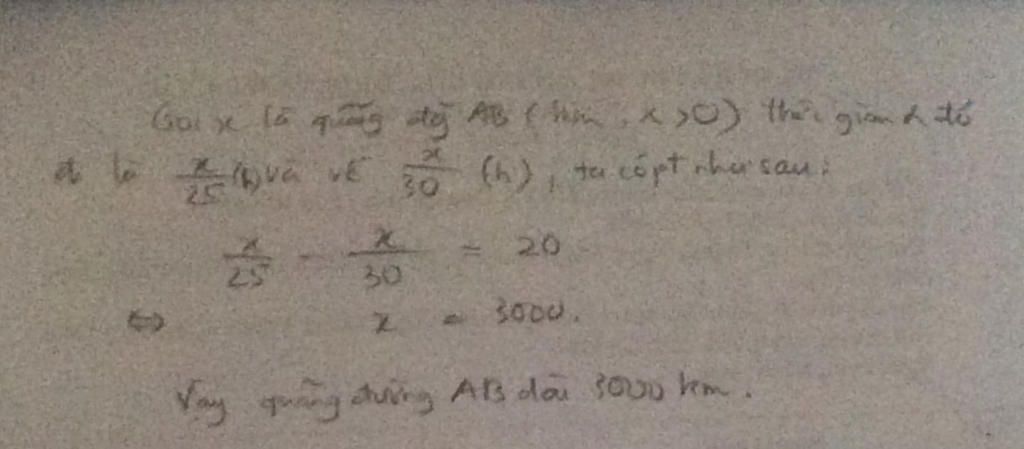 Gọi x là quãng đg AB (km, x >0) thời gian ô tô
đi là x/25 (h) và về x/30 (h), ta có pt như sau:
x/25 - x/30 = 20
⇔ x = 3000.
Vậy quãng đường AB dài 3000 km.